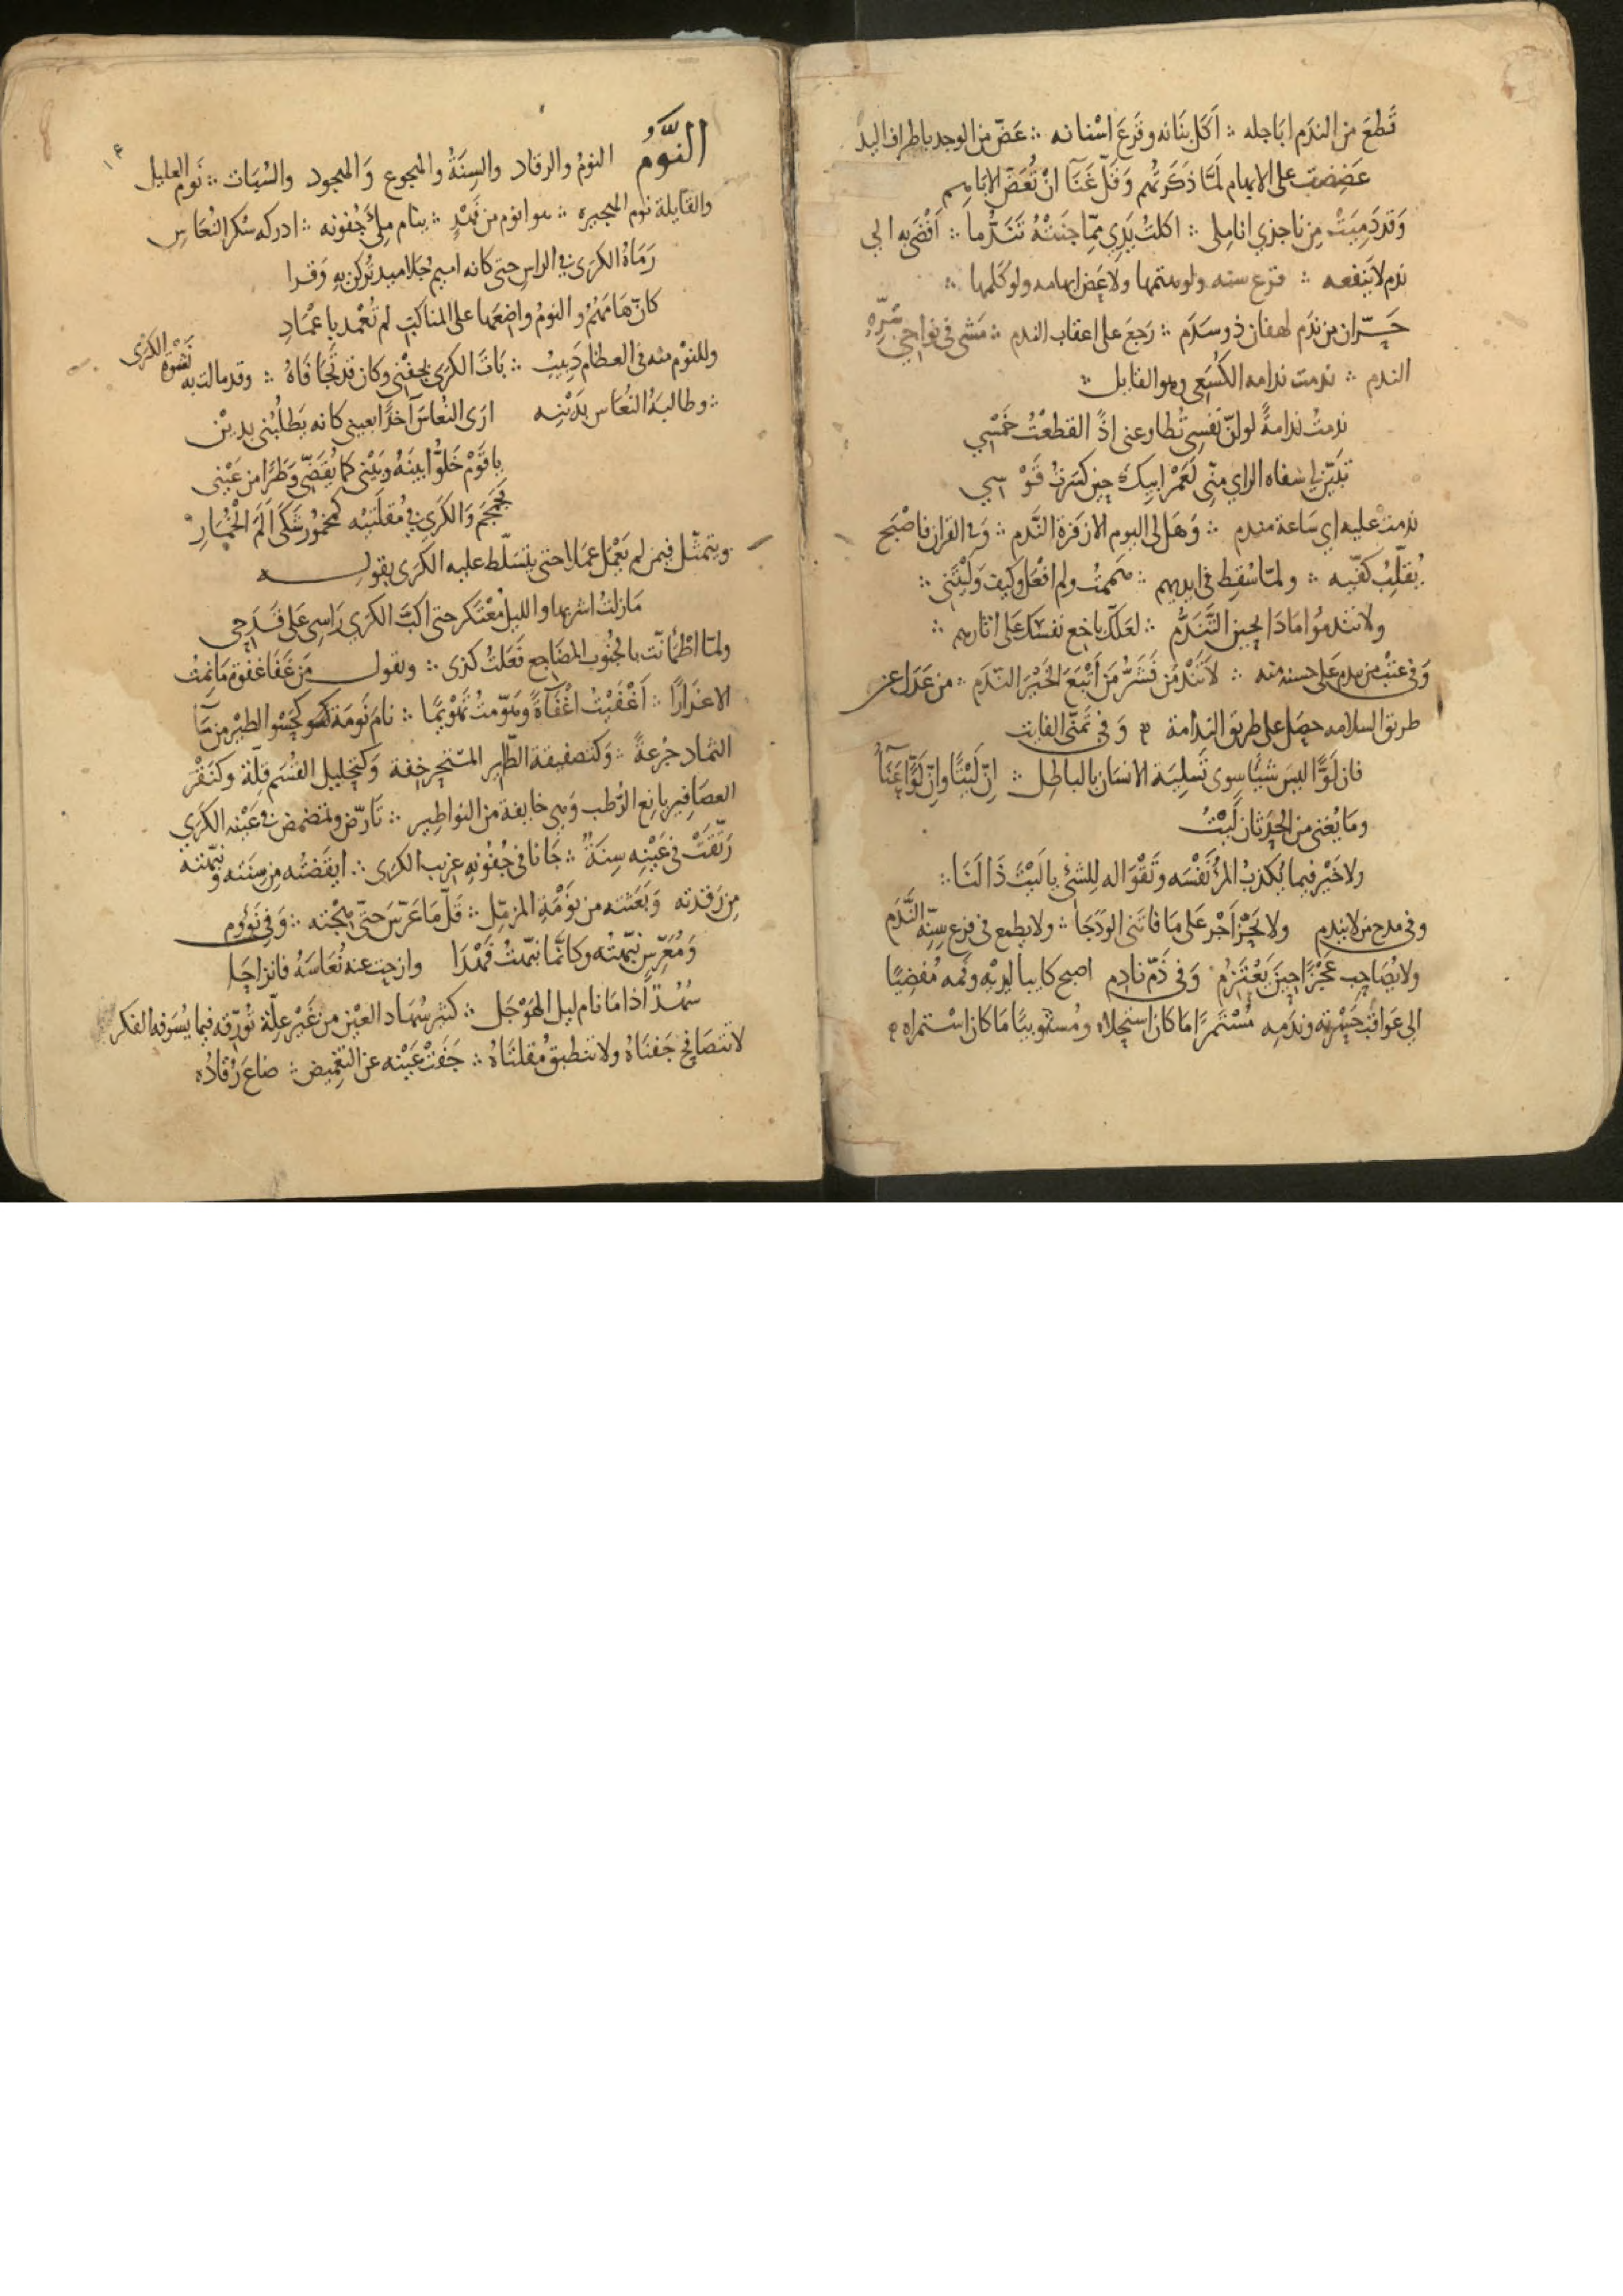 قَطعَ من الندَم اباجله ∴ اَكَل بنَانه وقَرعَ اسْنانه ∴ عَضّ من الوجد باطراف اليد
عَضِضتُ على الابهام لمّا ذكرتُهم وَقلّ غَنَآ انْ تُعَضّ الاباهِم
وَقد دَمِيَتْ مِن ناجذي اناملى ∴ اكلتُ يَدِي مِمّا جنَتْهُ تَنَدُّما ∴ اَفْضَى به الى
ندم لا ينفعه ∴ قرع سنه ولو هتمها ولا عَض ابهامه ولو كلمها ∴
حَرّان من ندَم لهفان ذو سَدَم ∴ رَجعَ على اعقاب الندم ∴ مَشى فى نواحى
الندم ∴ ندمت ندامه الكُسَعِى وهو القايل ∴
ندمتُ ندامةً لو انّ نَفسِى تُطاوعنى اذًا لقطعْتُ خَمْسِي
تبَيّن لى سَفاه الراي منّى لَعَمْر ابِيكَ حِين كسَرتُ قَوْسِي
ندمتْ عليه اي سَاعة مندم ∴ وَهَل لى اليوم الا زفرة النَّدم ∴ وَفى القران فاصْبَح
يُقلِّبُ كفّيه ∴ ولمّا سُقِط فى ايديهم ∴ هَممتُ ولم افْعَل وكيف وَليْتَنِى ∴
ولا تندمُوا مَاذَا بحِين التَّنَدُّم ∴ لعَلّكَ باخع نفسَكَ عَلى اثارهم ∴
وَفى عتْب من ندم عَلى حسنه منه ∴ لا تَنْدمَن فَشَرُّ مَن اَتْبَعَ الخَيْرَ الندَم ∴ من عَدَل عن
طريق السلامه حصَل على طريق الندامة ∴ وَفى تَمنّى الفايت
فان لوًّا ليسَ شيًا سِوى تَسلِيَة الانسَان بالباطِل ∴ اِنّ لَيْتًا وانّ لَوًّا عَنَآءُ
ومَا يُغنى من الحِدثان لَيْتُ
ولا خَيْر فيما يُكذبُ المرُْ نَفْسَه وتَقْوَاله لِلشئ يا لَيْتَ ذَا لَنَا ∴
وفى مدح من لا يندم ولا تَجْزاَجْر عَلى مَا فاتَنى الودَجَا ∴ ولا يطمع فى قرع سِنِّه النَّدَم
ولا يُصَاحِب عَجْزًا حِينَ يَعْتَزِمُ وَفى ذَمّ نادِم اصبح كابيا ليديْه وفمه مُفضِيًا
الى عَواقب حَسْرته وندَمِه مُسْتَمرًا مَا كان استحلاه ومُستَوبيًا مَا كان اسْتمراه
النَّومُ النومُ والرقاد والسِنَةُ والهجوع وَالهجود والسُبَات ∴ نَوم العليل
والقَايلة نوم الهَجيره ∴ هو انوم من فَهْدٍ ∴ ينام مِلىَْ جُفونه ∴ ادركه سُكر النُعَاسِ
رَمَاهُ الكرَى فى الراس حتى كانه اميم جَلاميد تَركن به وَقرا
كانّ هَامَهُمُ والنومُ واضِعهَا على المناكب لم تُعْمد باعْمَادِ
وللنوْم منه فى العظام دَبِيبُ ∴ بَاتَ الكرَى بجفْنى وكان قد تجَافَاهُ ∴ وقد مالت به نَشْوَة الكَرَى
∴ وطالبهُ النُعَاس بدَيْنِه ارَى النُعَاسَ آخذًا بعينى كانه يَطلُبُنى بدين
يا قَوْم خَلّوا بينَهُ وَبَيْنِى كَما يُقَضّى وَطَرًا من عَيْنى
تجَمجَم وَالكرى فى مُقلَتيْه كمخمُورٍ شَكَى اَلَمَ الخُمَارِ
ويتمثّل فيمن لم يَعْمَل عَمَلا حتى يتسَلّط عليه الكَرَى بقوله
مَازلتُ اشربها والليلُ مُعْتكر حتى اكبَّ الكرَى رَاسِى عَلى قَدَحِى
ولمّا اطْمَأنّت بالجنُوب المضَاجع فَعَلتُ كذى ∴ وتقول مَن غَفَا غَفوة مَا نِمتُ
الا غرَارًا ∴ اَغْفَيْتُ اغْفَآءَةً وهوّمتُ تَهْوِيمًا ∴ نامَ نَومَة كحَسْو الطيْر من مَآ
الثماد جرْعةً ∴ وَكتصفيقة الطّاير المسْتحِر خِفة وَكتحليل القسَم قِلّة وكنَقْر
العصَافِير يانِع الرُطب وَهى خايفة من النواطِير ∴ تَارّض وتمضمض فى عَيْنه الكرَى
رَنّقَتْ فى عَيْنِه سِنَةٌ ∴ جَانا فى جُفونه غريب الكرَى ∴ ايقَضتُه مِن سِنَته ونبّهته
مِن رَقدته وَبَعَثته من نوْمَةِ المزمّل ∴ قَلّ مَا عَرّسَ حَتّى هِجْته ∴ وَفى نَؤُوم
وَمُعَرِّسٍ نبّهتُه وكانّمَا نبّهتُ فَهْدَا وازحت عنه نُعَاسَهُ فانزاحَا
سُهُدًا اذا مَا نام ليل الهَوْجَل ∴ كثير سُهَاد العَيْن من غَيْر علِّة تُورّقه فيما يُسَوفه الفكر
لا تتصَافحُ جَفنَاهُ ولا تنطبقُ مُقلتَاهُ ∴ جَفَتْ عَيْنه عن التغميض ∴ ضاعَ رُقَادُه